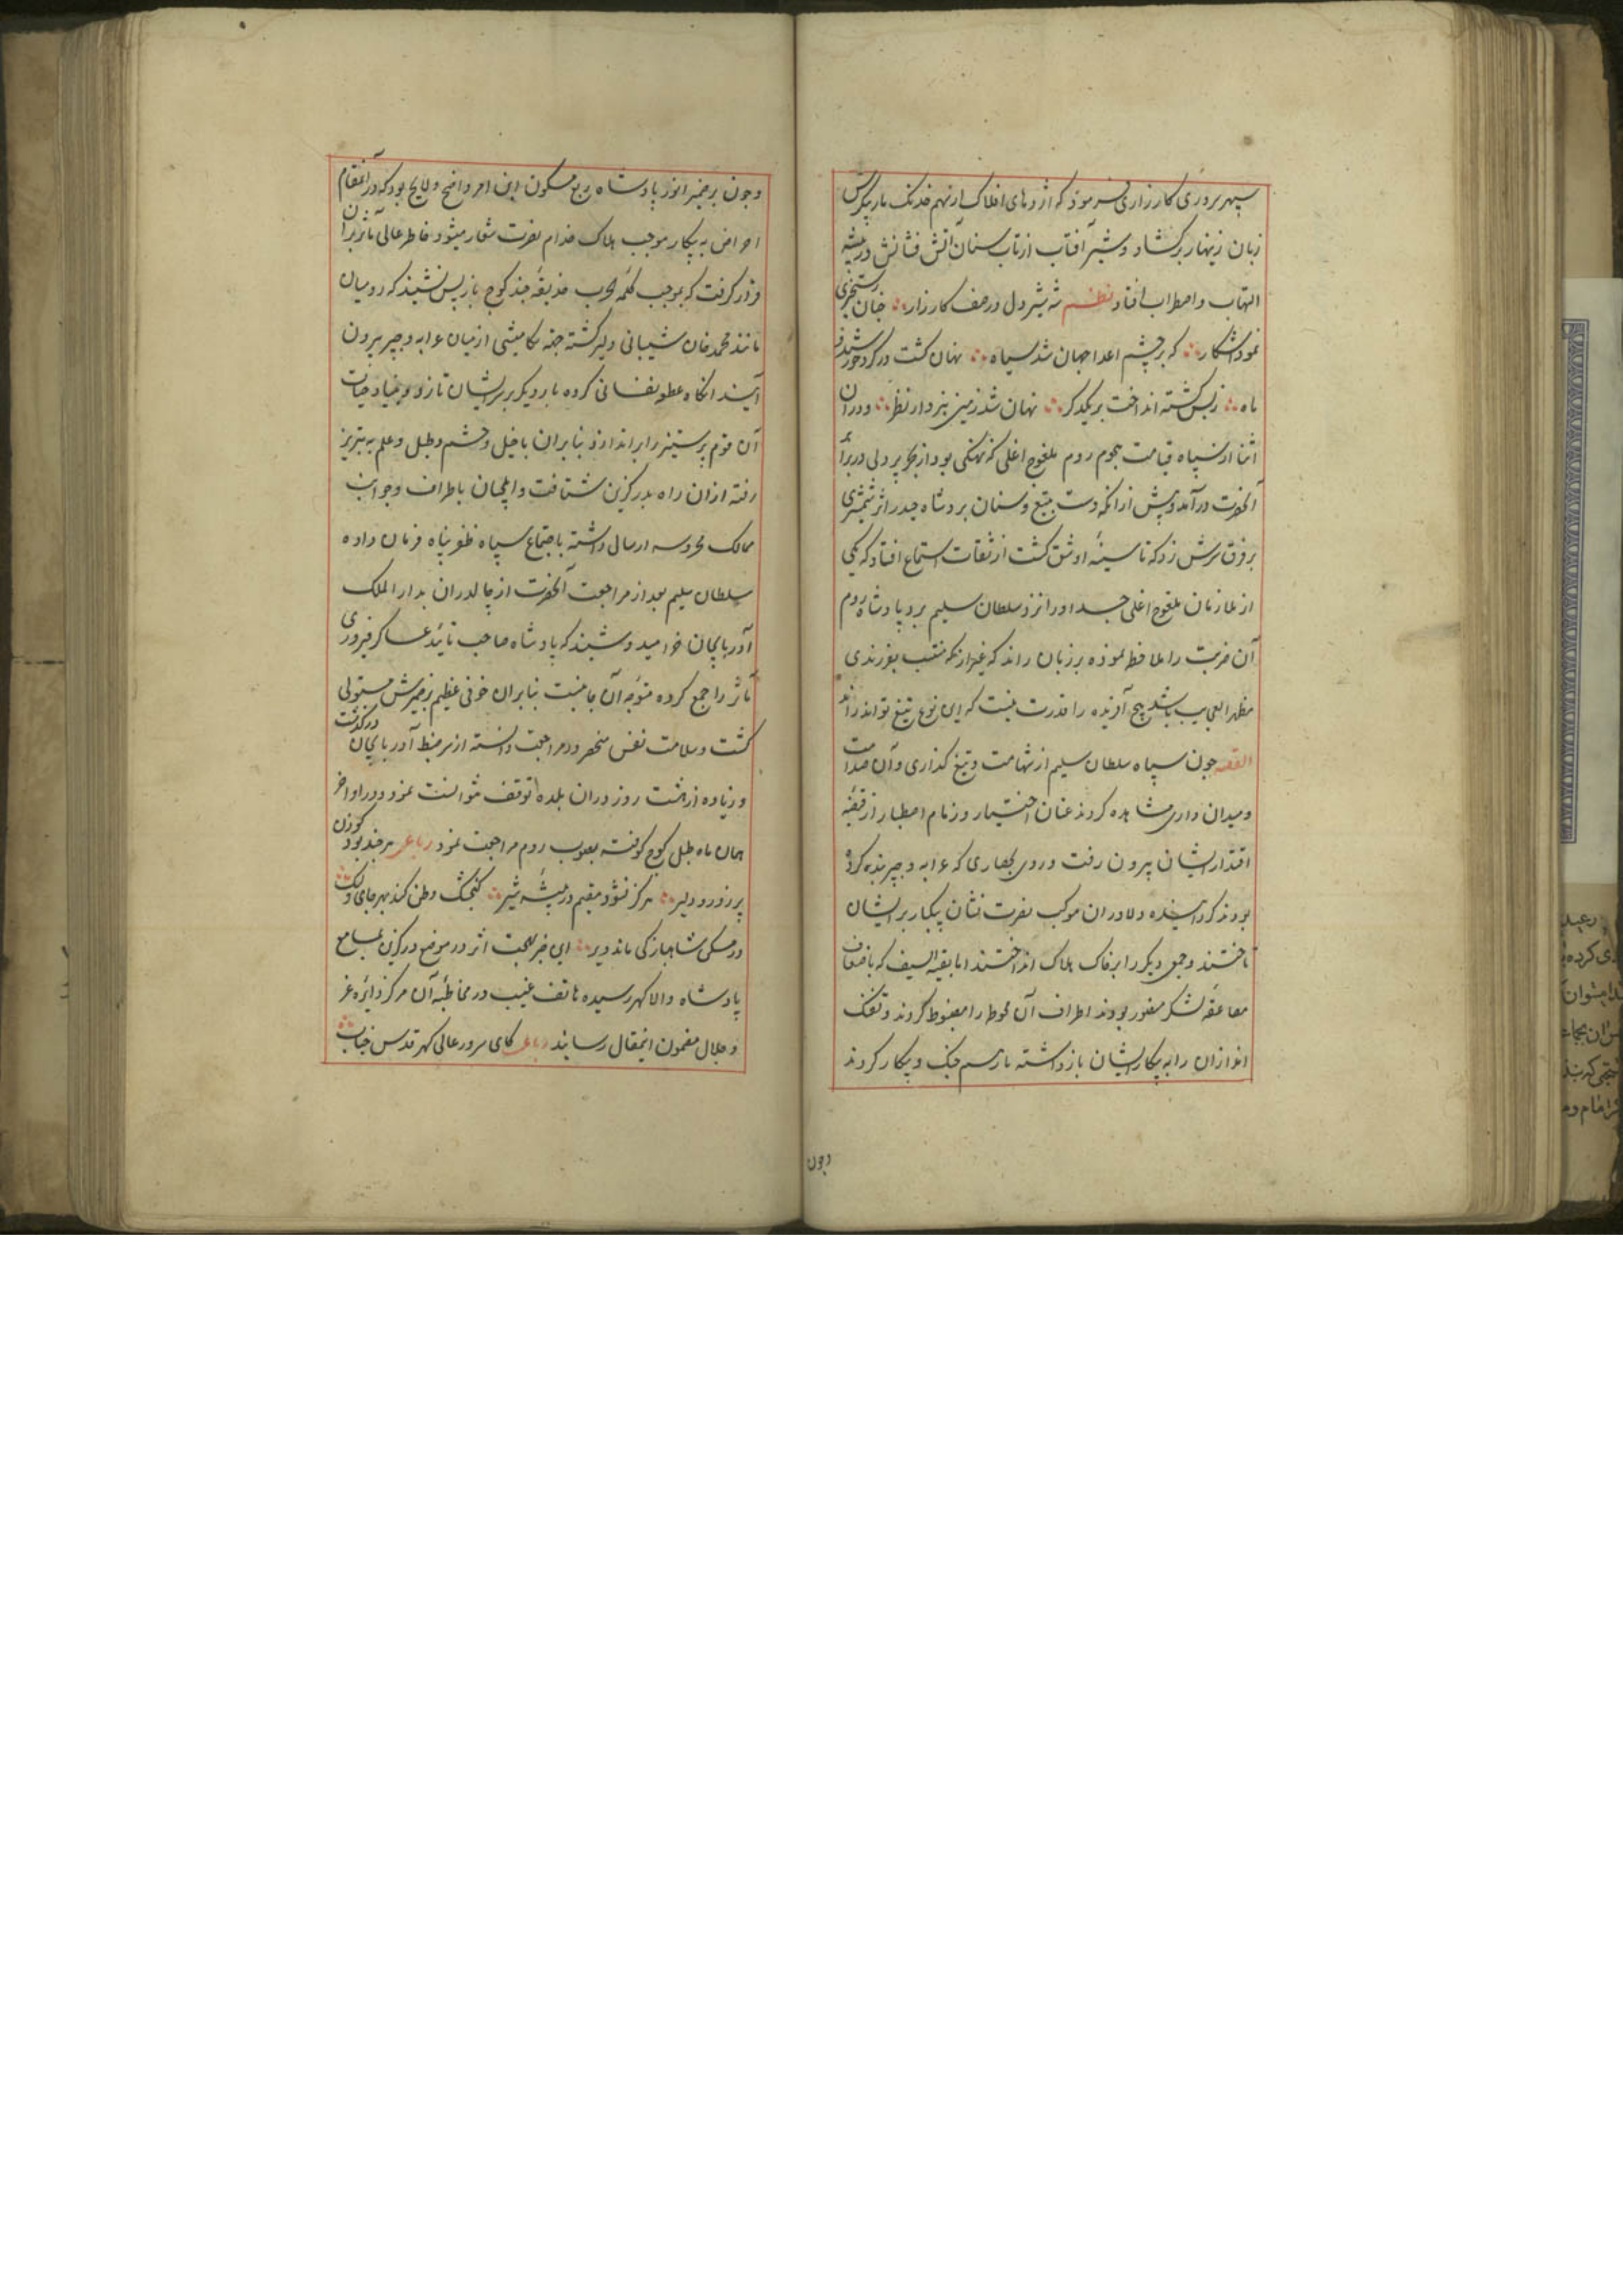 سپهر بروری کارزاری فرمود که اژدهای افلاک از سهم خدنک مار پیکرش
زبان زینهار برکشاد و شیر آفتاب از تاب سنان آتش فشانش در بیشه
التهاب و اضطراب افتاد نظم شه شیردل در صف کارزار جنان رستخیزی
نمود آشکار که بر چشم اعدا جهان شد سیاه نهان کشت در کرد خورشید و
ماه زبس کشته انداخت بر یکدکر نهان شد زمین نیز دار نظر و در آن
اثنا از سپاه قیامت هجوم روم ملقوج اغلی که نهنکی بود از بحر پر دلی در برابر
آنحضرت در آمد و پیش از آنکه دست بتیغ و سنان برد شاه حیدر اثر شمشیری
بر فرق سرش زد که تا سینهٔ او شق کشت از ثقات استماع افتاد که یکی
از ملازمان ملقوج اغلی جسد او را نزد سلطان سلیم برد پادشاه روم
آن ضربت را ملاحظه نموده بر زبان راند که غیر از آنکه منتسب بفرزندی
مظهر العجایب باشد هیچ آفریده را قدرت نیست که این نوع تیغ تواند راند
القصه جون سپاه سلطان سلیم از شهامت و تیغ کذاری و آن صدامت
و میدان داری مشاهده کردند عنان اختیار و زمام اصطبار از قبضه
اقتدار ایشان بیرون رفت و روی بحصاری که عرابه و چپر بندی کرده
بودند کردانیده دلاوران موکب نصرت نشان پیکار بر ایشان
تاختند و جمعی دیکر را بر خاک هلاک انداختند اما بقیة السیف که باضعاف
مضاعفه لشکر منصور بودند اطراف آن محوطه را مضبوط کردند و تفنک
اندازان را به پیکار ایشان باز داشته باز رسم جنک و پیکار کردند
وجون
وجون بر ضمیر انور پادشاه ربع مسکون این امر واضح و لایح بود که در آنمقام
اعراض به پیکار موجب هلاک خدام نصرت شعار میشود خاطر عالی مآثر بر آن
قرار کرفت که بموجب کلمه الحرب خدعة چند کوچ باز پس نشیند که رومیان
مانند محمد خان شیبانی دلیر کشته جنه کامیشی از میان عرابه و چپر بیرون
آیند آنکاه عطف عنانی کرده بار دیکر بر سر ایشان تازد و بنیاد حیات
آن قوم پر ستیز را براندازد بنابران با خیل و حشم و طبل و علم به تبریز
رفته از آن راه بدرکزین شتافت و ایلچیان باطراف و جوانب
ممالک محروسه ارسال داشته باجتماع سپاه ظفر پناه فرمان داده
سلطان سلیم بعد از مراجعت آنحضرت از چالدران بدار الملک
آذربایجان خرامید و شنید که پادشاه صاحب تائید عساکر فیروزی
مآثر را جمع کرده متوجه آن جانبست بنابران خوفی عظیم بر ضمیرش مستولی
کشت و سلامت نفس منحصر در مراجعت دانسته از سر ضبط آذربایجان درکذشت
و زیاده از هشت روز در آن بلده توقف نتوانست نمود و در اواخر
همان ماه طبل کوچ کوفته بصوب روم مراجعت نمود رباعی هر چند بود کوزن
پر زور و دلیر هرکز نشود مقیم در بیشهٔ شیر کنجشک وطن کند بهر جای ولیک
در مسکن شاهباز کی ماند دیر این خبر بهجت اثر در موضع درکزین بمسامع
پادشاه والا کهر رسیده هاتف غیب در مخاطبهٔ آن مرکز دایرهٔ عز
و جلال مضمون اینمقال رسانید رباعی کای سرور عالی کهر قدس جناب